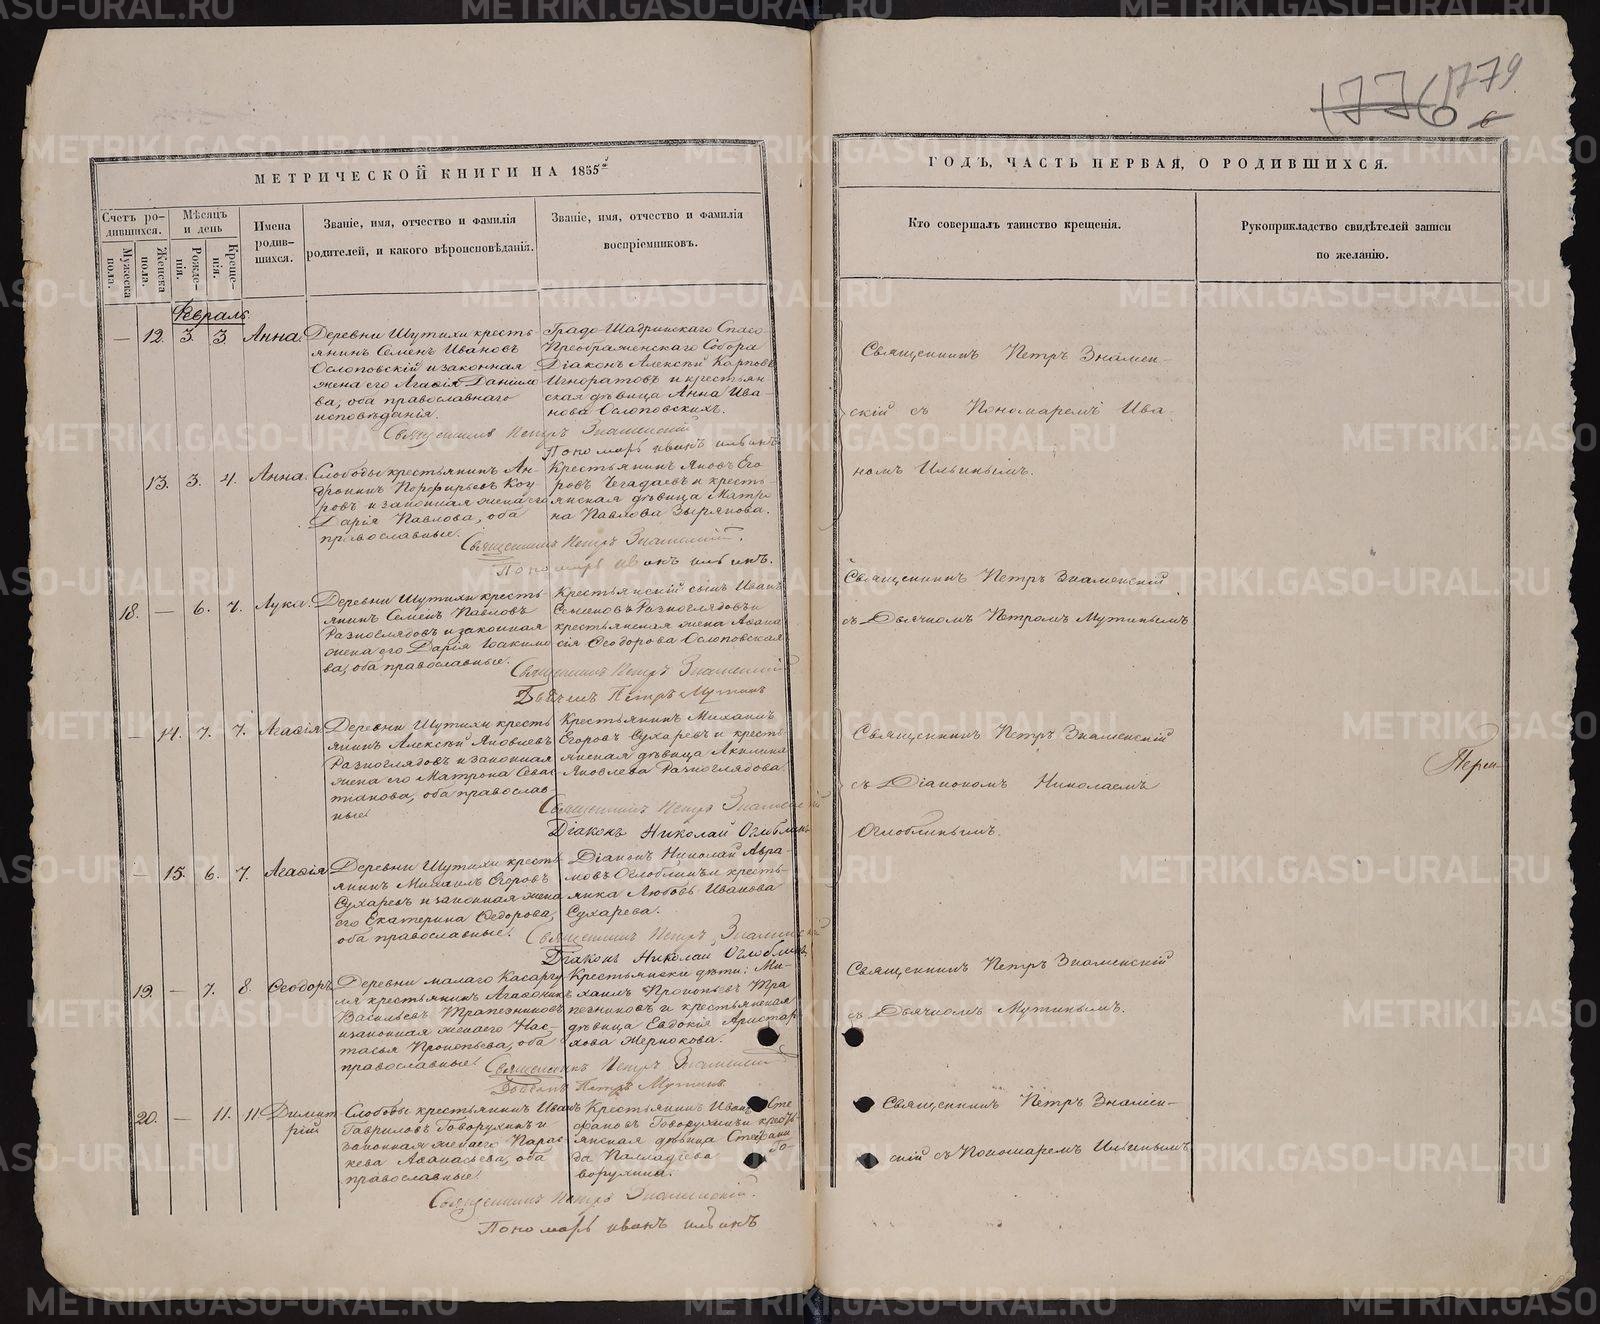 1776 1779
МЕТРИЧЕСКОЙ КНИГИ НА 1855й
ГОДЪ, ЧАСТЬ ПЕРВАЯ, О РОДИВШИХСЯ.
Счетъ родившихся.
Мужеска пола.
Женска пола.
Мѣсяцъ и день
Рожденія.
Крещенія.
Имена родившихся.
Званіе, имя, отчество и фамилія
родителей, и какого вѣроисповѣданія.
Званіе, имя, отчество и фамилія
воспріемниковъ.
Кто совершалъ таинство крещенія.
Рукоприкладство свидѣтелей записи
по желанію.
Февраль.
— 12. 3. 3. Анна.
Деревни Шутихи кресть-
янинъ Семенъ Ивановъ
Ослоповскій и законная
жена его Агафія Данило
ва, оба православнаго
исповѣданія.
Градо-Шадринскаго Спасо-
Преображенскаго Собора
Діаконъ Алексѣй Карповъ
Игноратовъ и крестьян
ская дѣвица Анна Ива
нова Ослоповскихъ.
Священникъ Петръ Знаменскій
Пономарь иванъ ильинъ
Священникъ Петръ Знамен-
скій съ Пономаремъ Ива-
номъ Ильинымъ.
13. 3. 4. Анна.
Слободы крестьянинъ Ан-
дроникъ Порфирьевъ Коу-
ровъ и законная жена его
Дарія Павлова, оба
православные.
Крестьянинъ Яковъ Его
ровъ Чегадаевъ и кресть-
янская дѣвица Матре
на Павлова Зырянова.
Священникъ Петръ Знаменскій.
Пономарь иванъ ильинъ.
18. — 6. 7. Лука.
Деревни Шутихи кресть-
янинъ Семенъ Павловъ
Разноглядовъ и законная
жена его Дарія Іоакимо
ва, оба православные.
Крестьянскій сынъ Иванъ
Семеновъ Разноглядовъ и
крестьянская жена Афана
сія Феодорова Ослоповская
Священникъ Петръ Знаменскій
Дьячекъ Петръ Мутинъ
Священникъ Петръ Знаменскій
съ Дьячкомъ Петромъ Мутинымъ
— 14. 7. 7. Агафія
Деревни Шутихи кресть
янинъ Алексѣй Яковлевъ
Разноглядовъ и законная
жена его Матрона Севас
тіанова, оба православ-
ные.
Крестьянинъ Михаилъ
Егоровъ Сухаревъ и кресть
янская дѣвица Акилина
Яковлева Разноглядова
Священникъ Петръ Знаменскій
Діаконъ Николай Оглоблинъ
Священникъ Петръ Знаменскій
съ Діакономъ Николаемъ
Оглоблинымъ.
— 15. 6. 7. Агафія
Деревни Шутихи кресть
янинъ Михаилъ Егоровъ
Сухаревъ и законная жена
его Екатерина Федорова,
оба православные.
Діаконъ Николай Авра-
мовъ Оглоблинъ и кресть-
янка Любовь Иванова
Сухарева.
Священникъ Петръ Знаменскій
Діаконъ Николай Оглоблинъ
19. — 7. 8. Феодоръ
Деревни малаго Касаргу
ля крестьянинъ Агафоникъ
Васильевъ Трапезниковъ
и законная жена его Нас-
тасья Прокопьева, оба
православные.
Крестьянски дѣти: Ми-
хаилъ Прокопьевъ Тра
пезниковъ и крестьянская
дѣвица Евдокія Аристар
хова Жернокова.
Священникъ Петръ Знаменскій
Дьячекъ Петръ Мутинъ
Священникъ Петръ Знаменскій
съ Дьячкомъ Мутинымъ.
20. — 11. 11 Димит
рій
Слободы крестьянинъ Иванъ
Гавриловъ Говорухинъ и
законная жена его Парас-
кева Афанасьева, оба
православные.
Крестьянинъ Иванъ Сте
фановъ Говорухинъ и кресть
янская дѣвица Стефани
да Палладіева Го-
ворухина.
Священникъ Петръ Знаменскій.
Пономарь иванъ ильинъ
Священникъ Петръ Знамен-
скій съ Пономаремъ Ильинымъ
METRIKI.GASO-URAL.RU